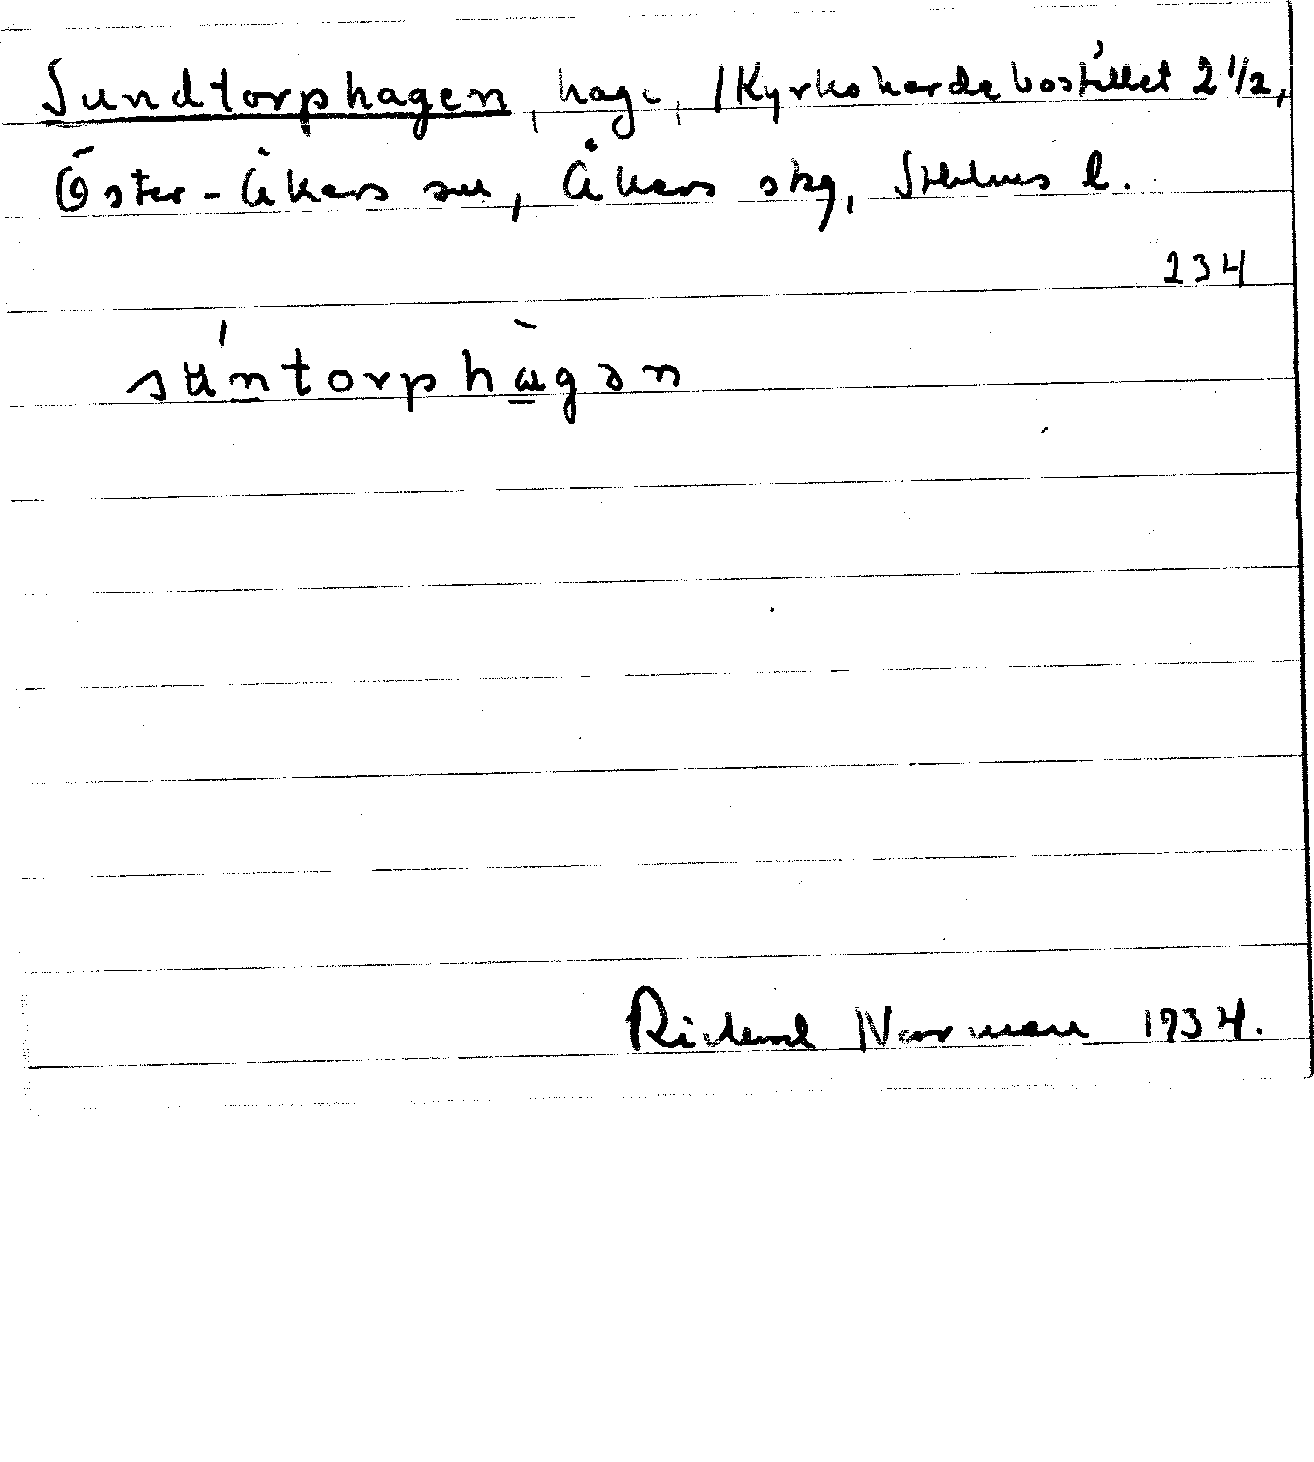 Sundtorphagen, hage, /Kyrkoherdebostället 2 1/2,
Öster-Åkers sn, Åkers skg, Sthlms l.
234
su̇ntorphàgən
Rickard Norrman 1934.